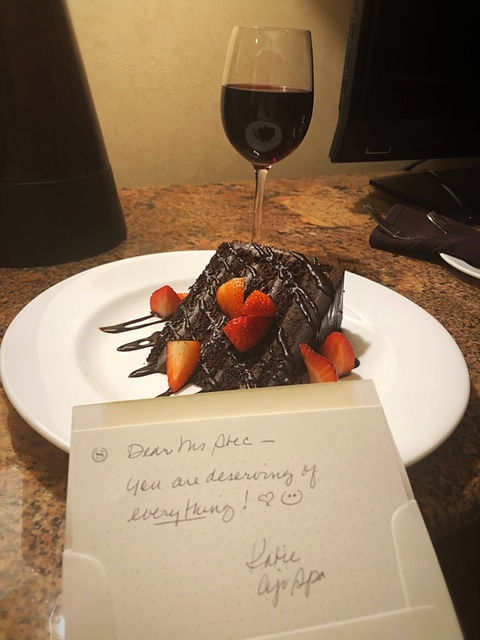 Dear Ms. Stec —
you are deserving of
everything! ♡ ☺
Katie
Ajo Spa